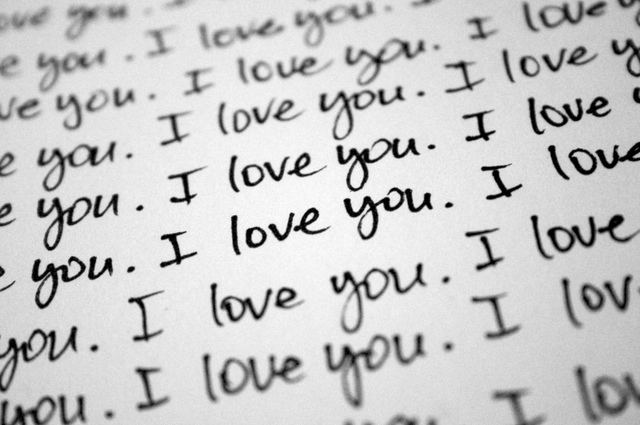 ove you.
e you. I love you. I
ve you. I love you. I love
e you. I love you. I love y
e you. I love you. I love
e you. I love you. I love
you. I love you. I love
you. I love you. I lov
I lov